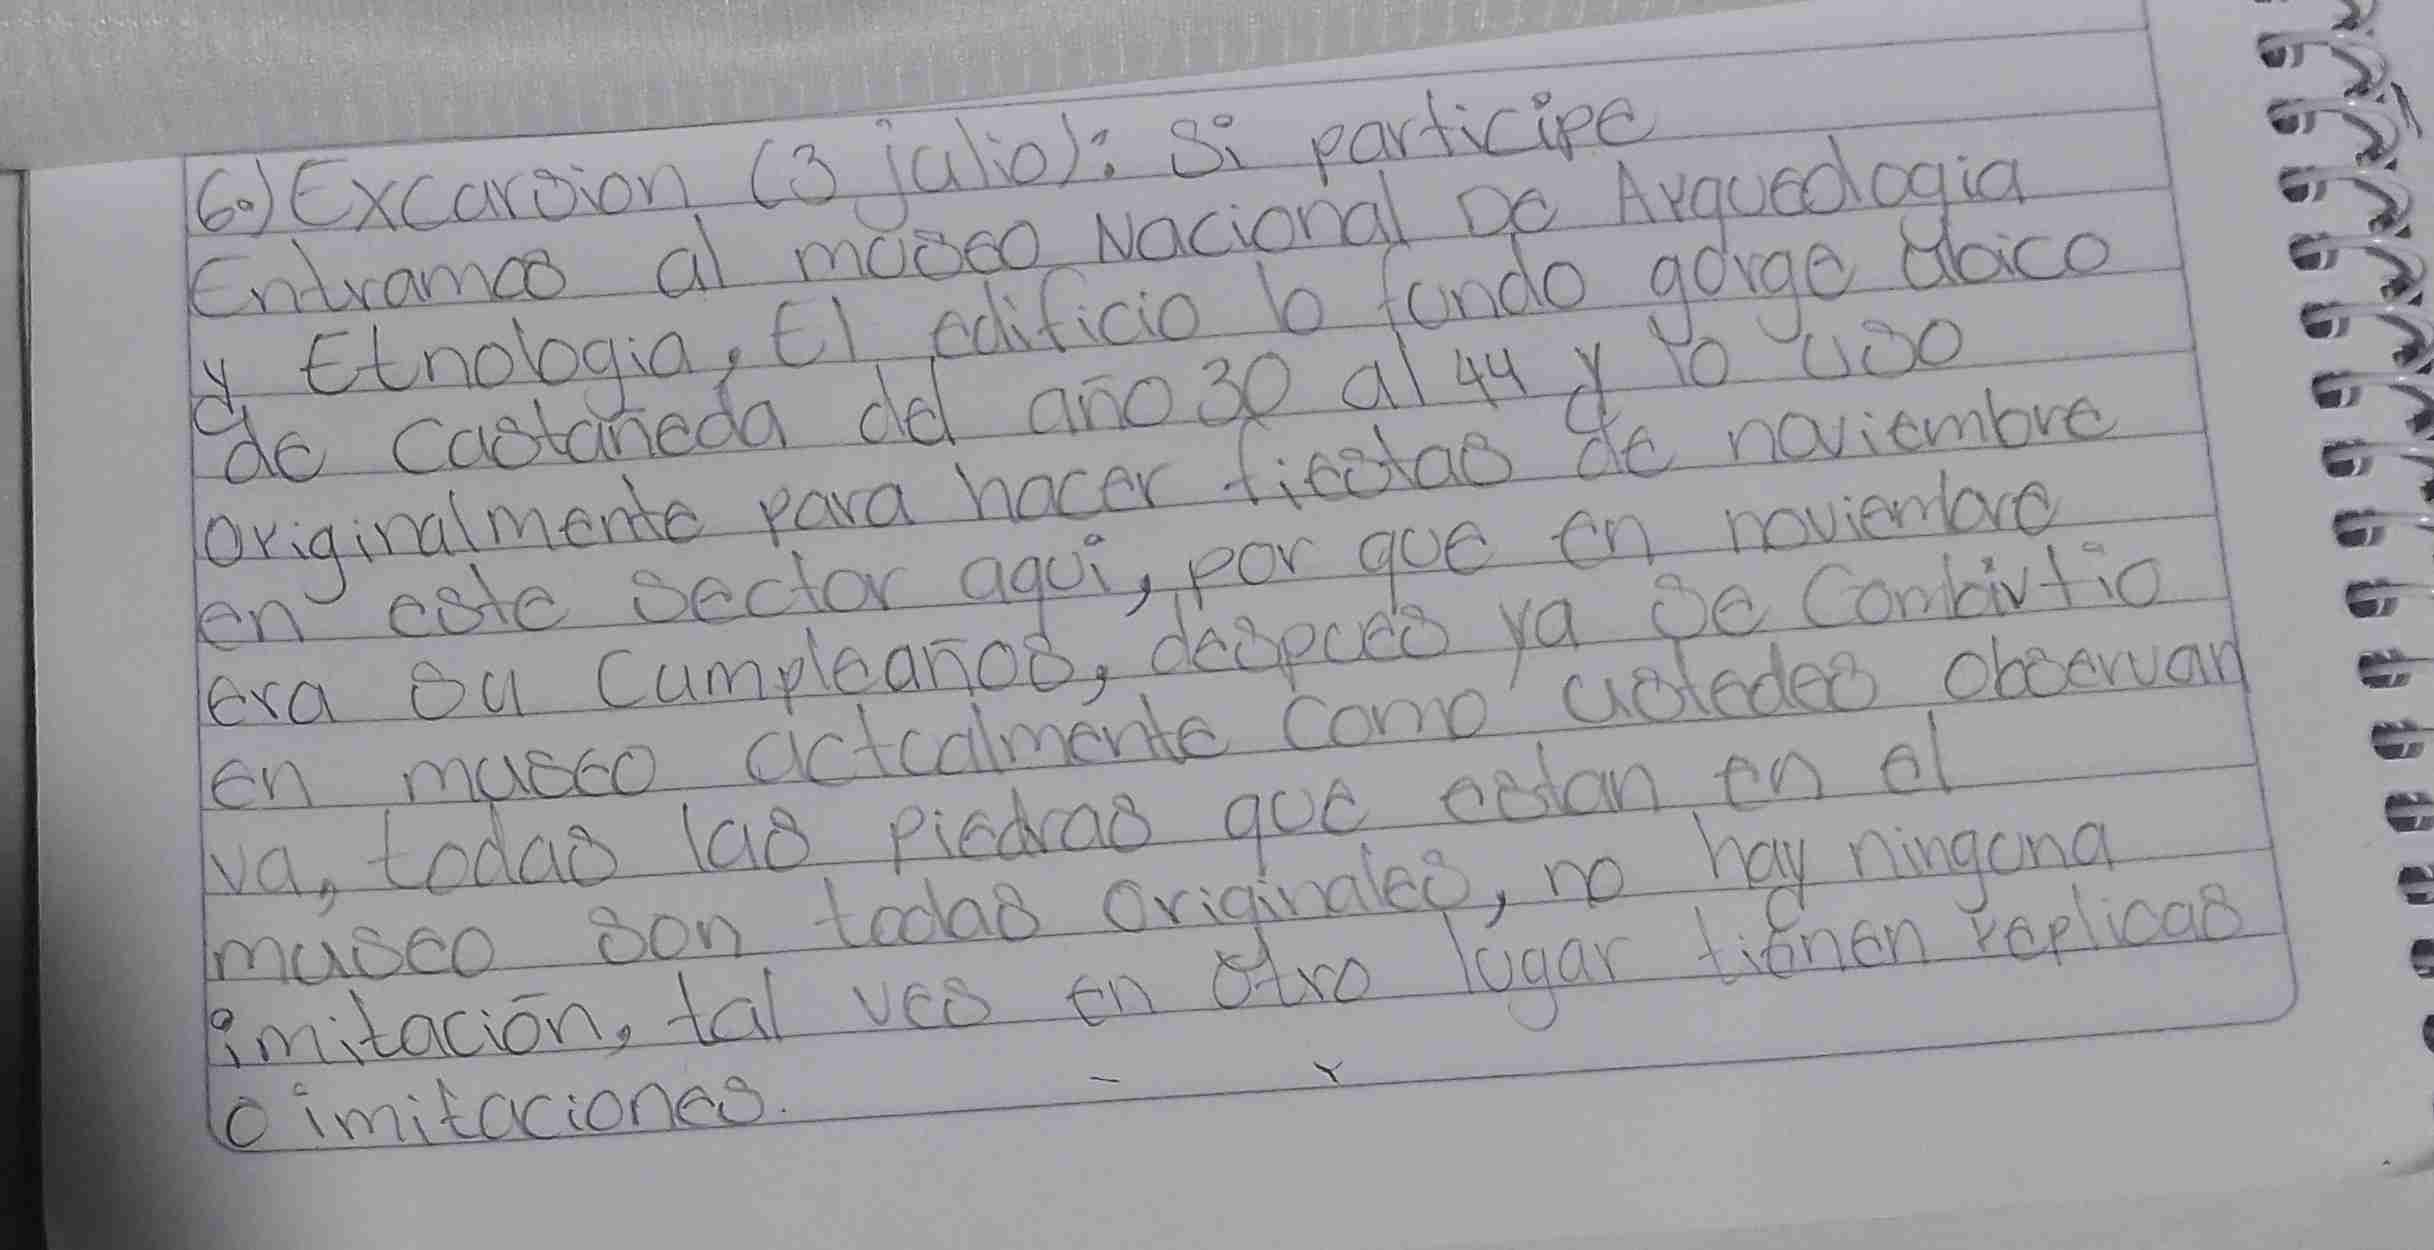 6.) Excursion (3 julio): Si participe
Entramos al museo Nacional De Arqueologia
y Etnologia, El edificio lo fundo gorge ubico
de Castañeda del año 30 al 44 y lo uso
originalmente para hacer fiestas de noviembre
en este sector aqui, por que en noviembre
era su cumpleaños, despues ya se combirtio
en museo actualmente como ustedes observan
va, todas las piedras que estan en el
museo son todas originales, no hay ninguna
imitación, tal ves en otro lugar tienen replicas
o imitaciones.